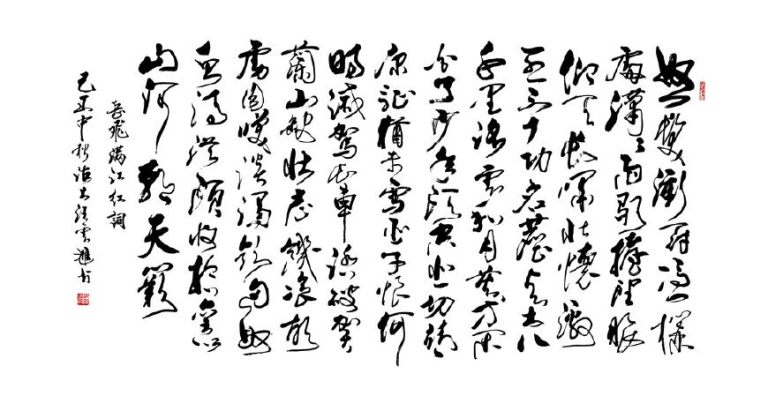 怒髮衝冠憑欄
處瀟瀟雨歇擡望眼
仰天長嘯壯懷激
烈三十功名塵與土八
千里路雲和月莫等閒
白了少年頭空悲切靖
康恥猶未雪臣子恨何
時滅駕長車踏破賀
蘭山缺壯志饑餐胡
虜肉笑談渴飲匈奴
血待從頭收拾舊
山河朝天闕
岳飛滿江紅詞
己丑中秋